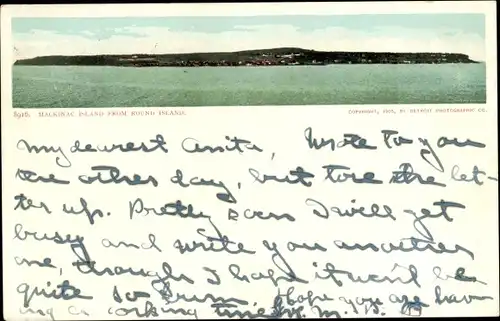 5918. MACKINAC ISLAND FROM ROUND ISLAND.
COPYRIGHT, 1902, BY DETROIT PHOTOGRAPHIC CO.
My dearest Anita, Wrote to you
the other day, but tore the let-
ter up. Pretty soon I will get
busy and write you another
one, though I hope it won't be
quite so Hope you are hav-
ing a corking time. M. B.